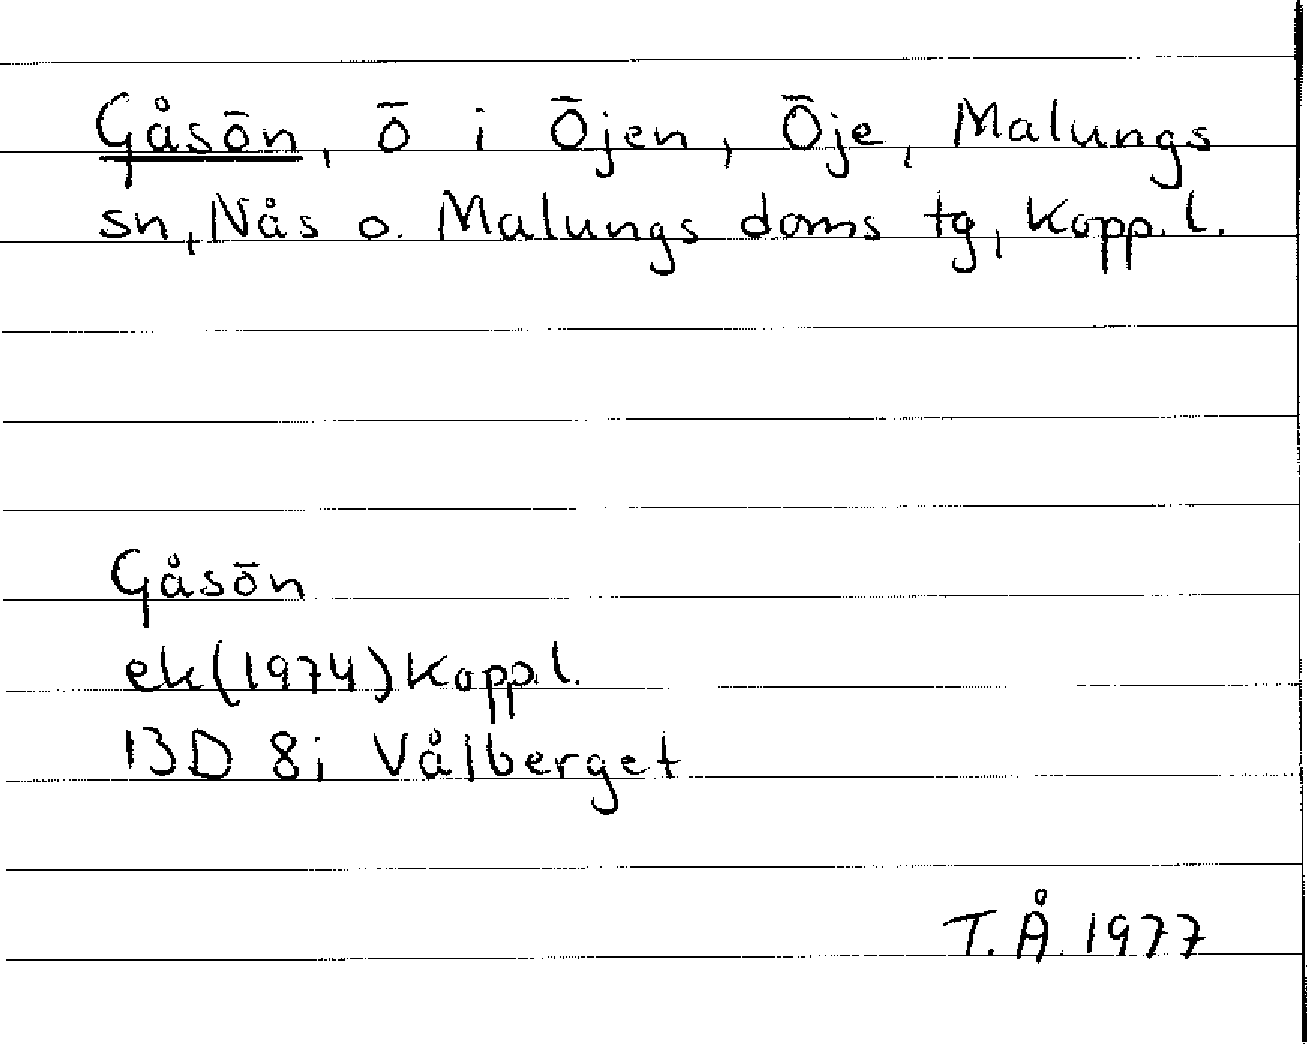 Gåsön, ö i Öjen, Öje, Malungs
sn, Nås o. Malungs doms tg, Kopp. l.
Gåsön
ek (1974) Kopp l.
13D 8i Vålberget
T. Å. 1977